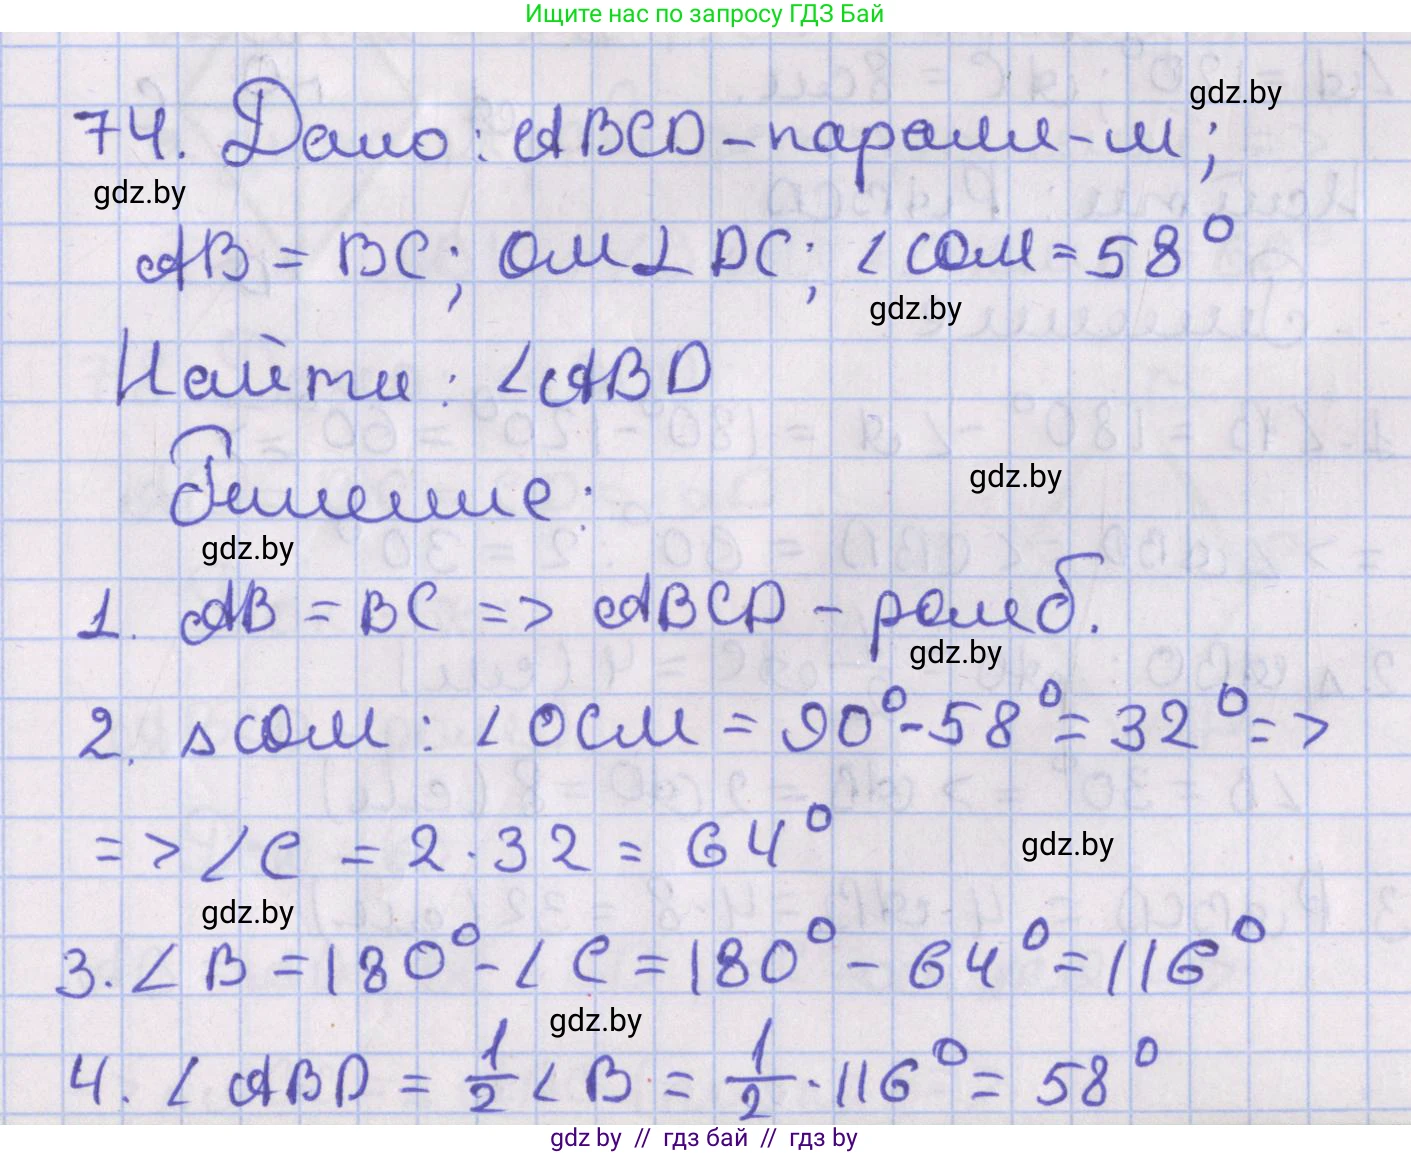 Ищите нас по запросу ГДЗ Бай
74. Дано: ABCD - паралл-м;
gdz.by
gdz.by
AB = BC; OM⊥DC; ∠COM = 58°
gdz.by
Найти: ∠ABD
Решение:
gdz.by
gdz.by
1. AB = BC => ABCD - ромб.
gdz.by
2. ▵COM: ∠OCM = 90° - 58° = 32° =>
=> ∠C = 2 · 32 = 64°
gdz.by
gdz.by
3. ∠B = 180° - ∠C = 180° - 64° = 116°
gdz.by
4. ∠ABD = 1/2 ∠B = 1/2 · 116° = 58°
gdz by // гдз бай // гдз by